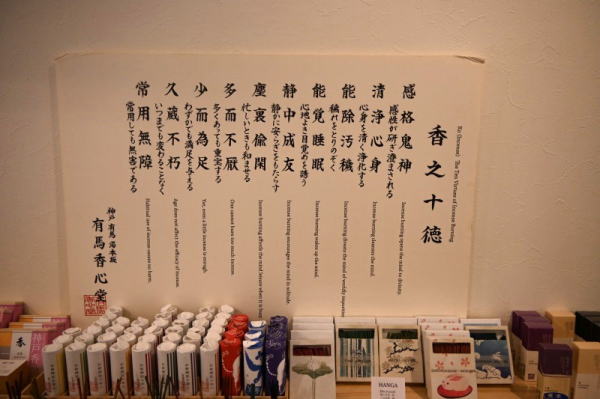 香之十徳
Ko (Incense) The Ten Virtues of Incense Burning
感格鬼神
感性が研ぎ澄まされる
Incense burning opens the mind to divinity.
清浄心身
心身を清く浄化する
Incense burning cleanses the mind.
能除汚穢
穢れをとりのぞく
Incense burning divests the mind of worldly impurities
能覚睡眠
心地よき目覚めを誘う
Incense burning wakes up the mind.
静中成友
静かに安らぎをもたらす
Incense burning encourages the mind in solitude.
塵裏偸閑
忙しいときも和ませる
Incense burning affords the mind leisure when it is busy
多而不厭
多くあっても重宝する
One cannot burn too much incense.
少而為足
わずかでも満足を与える
Yet, even a little incense is enough.
久蔵不朽
いつまでも変わることなく
Age does not affect the efficacy of incense.
常用無障
常用しても無害である
Habitual use of incense causes no harm.
神戸 有馬 湯本坂
有馬香心堂
香
HANGA